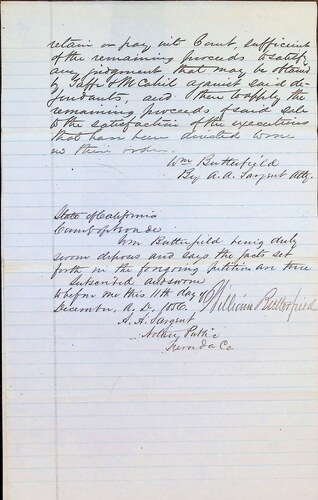 retain or pay into Court, sufficient
of the remaining proceeds to satisfy
any judgment that may be obtaind
by Taffe & McCahil against said de-
fendants, and then to apply the
remaining proceeds of said sale
to the satisfaction of the executions
that have been directed to me
in their order.
Wm Butterfield
By A. A. Sargent Atty.
State of California
County of Nevada
Wm Butterfield being duly
sworn deposes and says the facts set
forth in the foregoing petition are true
Subscribed and sworn
to before me this 11th day of
December, A. D. 1856.
William Butterfield
A. A. Sargent
Notary Public
Nevada Co